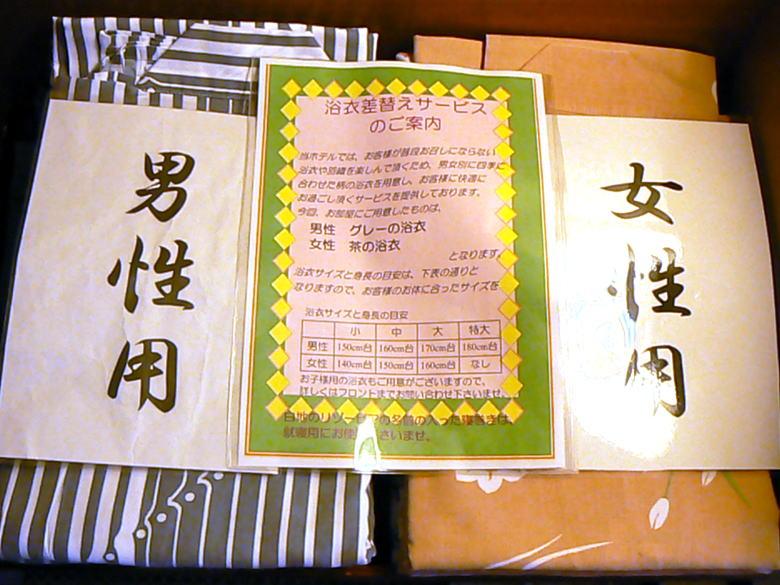 男性用
浴衣差替えサービス
のご案内
当ホテルでは、お客様が普段お召しにならない
浴衣や羽織を楽しんで頂くため、男女別に四季に
合わせた柄の浴衣を用意し、お客様に快適に
お過ごし頂くサービスを提供しております。
今回、お部屋にご用意したものは、
男性 グレーの浴衣
女性 茶の浴衣
となります。
浴衣サイズと身長の目安は、下表の通りと
なりますので、お客様のお体に合ったサイズを
浴衣サイズと身長の目安
小 中 大 特大
男性 150cm台 160cm台 170cm台 180cm台
女性 140cm台 150cm台 160cm台 なし
お子様用の浴衣もご用意がございますので、
詳しくはフロントまでお問い合わせ下さいませ。
白地のリゾーピアの名前の入った寝巻きは、
就寝用にお使い下さいませ。
女性用